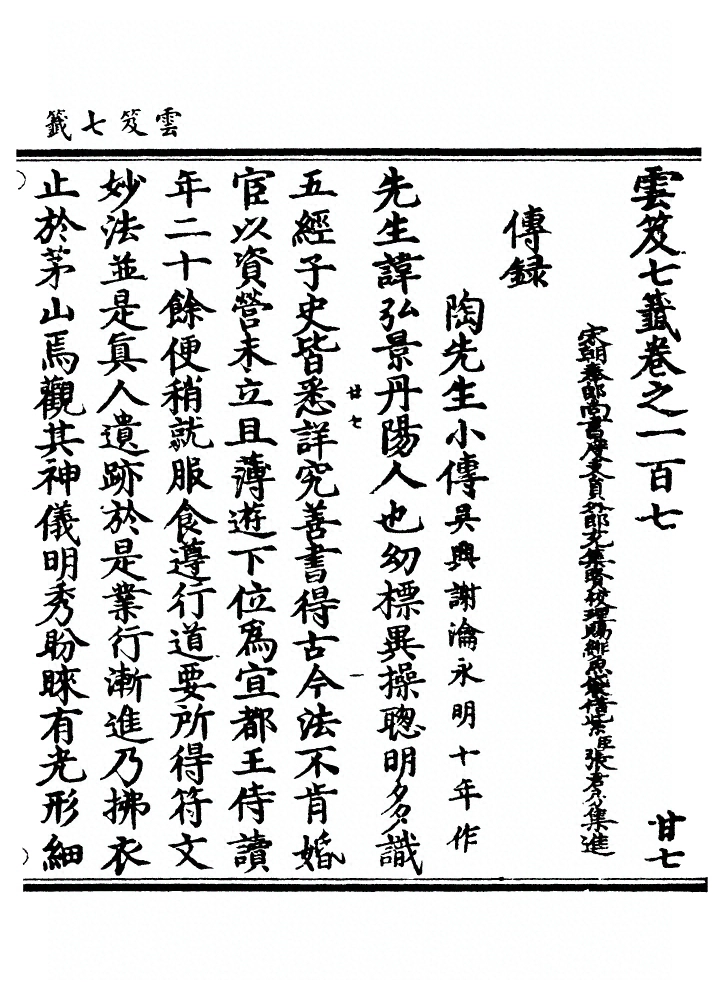 雲笈七籤
雲笈七籤卷之一百七 廿七
宋朝奉郎尚書度支員外郎充集賢校理賜緋魚袋借紫臣張君房集進
傳録
陶先生小傳 吴興謝瀹永明十年作
先生諱弘景丹陽人也幼標異操聰明多識
廿七
五經子史皆悉詳究善書得古今法不肯婚
宦以資營未立且薄遊下位爲宜都王侍讀
年二十餘便稍就服食遵行道要所得符文
妙法並是真人遺跡於是業行漸進乃拂衣
止於茅山焉觀其神儀明秀盼睞有光形細